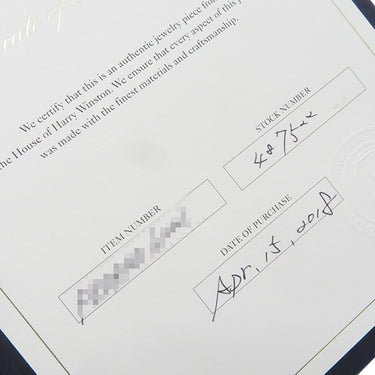 We certify that this is an authentic jewelry piece
the House of Harry Winston. We ensure that every aspect of this
was made with the finest materials and craftsmanship.
STOCK NUMBER
ITEM NUMBER
DATE OF PURCHASE
Apr, 15, 2018